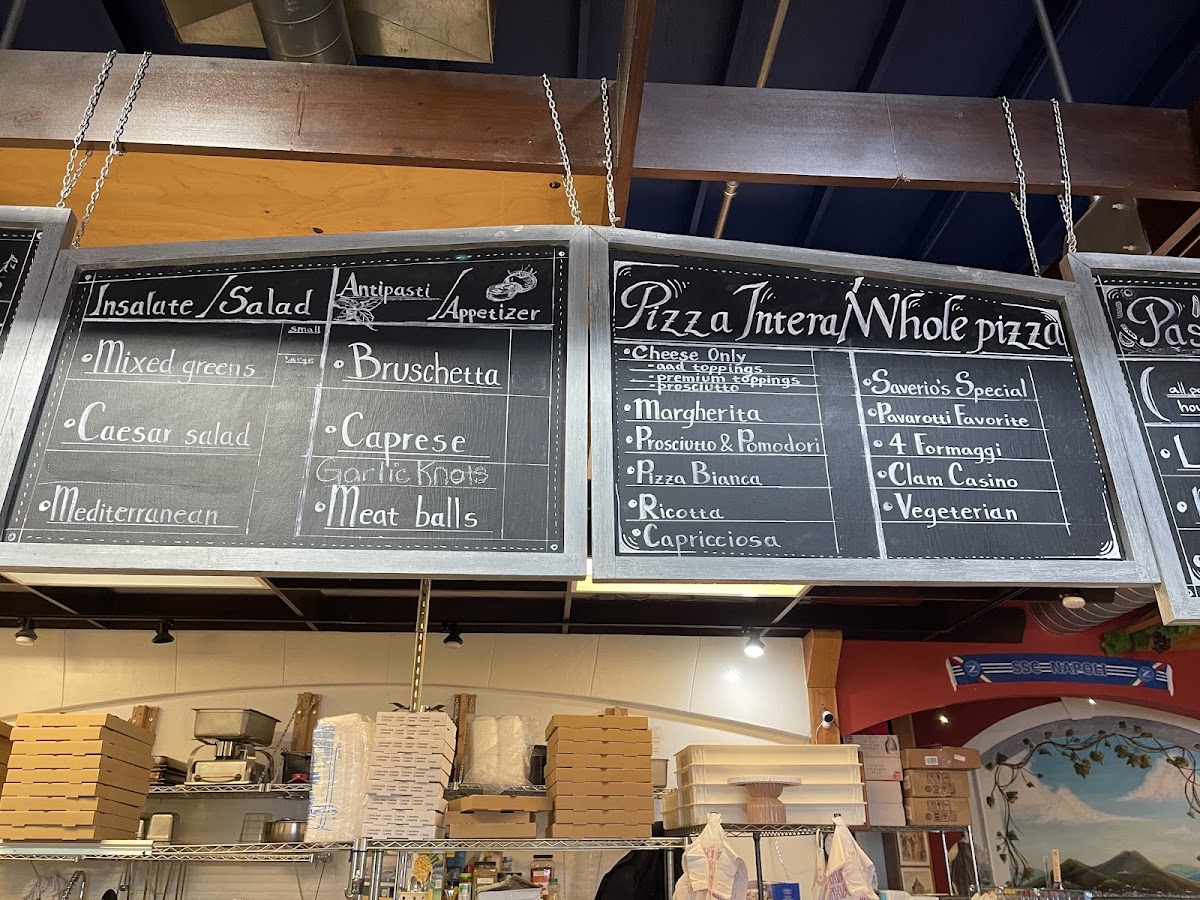 Insalate / Salad
small
large
• Mixed greens
• Caesar salad
• Mediterranean
Antipasti
/ Appetizer
• Bruschetta
• Caprese
Garlic Knots
• Meat balls
Pizza Intera / Whole pizza
• Cheese Only
- aad toppings
- premium toppings
- prosciutto
• Margherita
• Prosciutto & Pomodori
• Pizza Bianca
• Ricotta
• Capricciosa
• Saverio's Special
• Pavarotti Favorite
• 4 Formaggi
• Clam Casino
• Vegeterian
Pas
all p
SSC NAPOLI